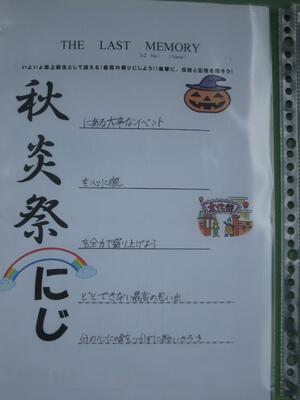 THE LAST MEMORY
3-2 No( ) (Name)
いよいよ最上級生として迎える!最高の祭りにしよう!!最後に、伝統と記憶を残そう!
秋炎祭にじ
にある大事なイベント
を心に宿し
を全力で盛り上げよう
どとできない最高の思い出
分の心に嘘をつかずに歌いきろう